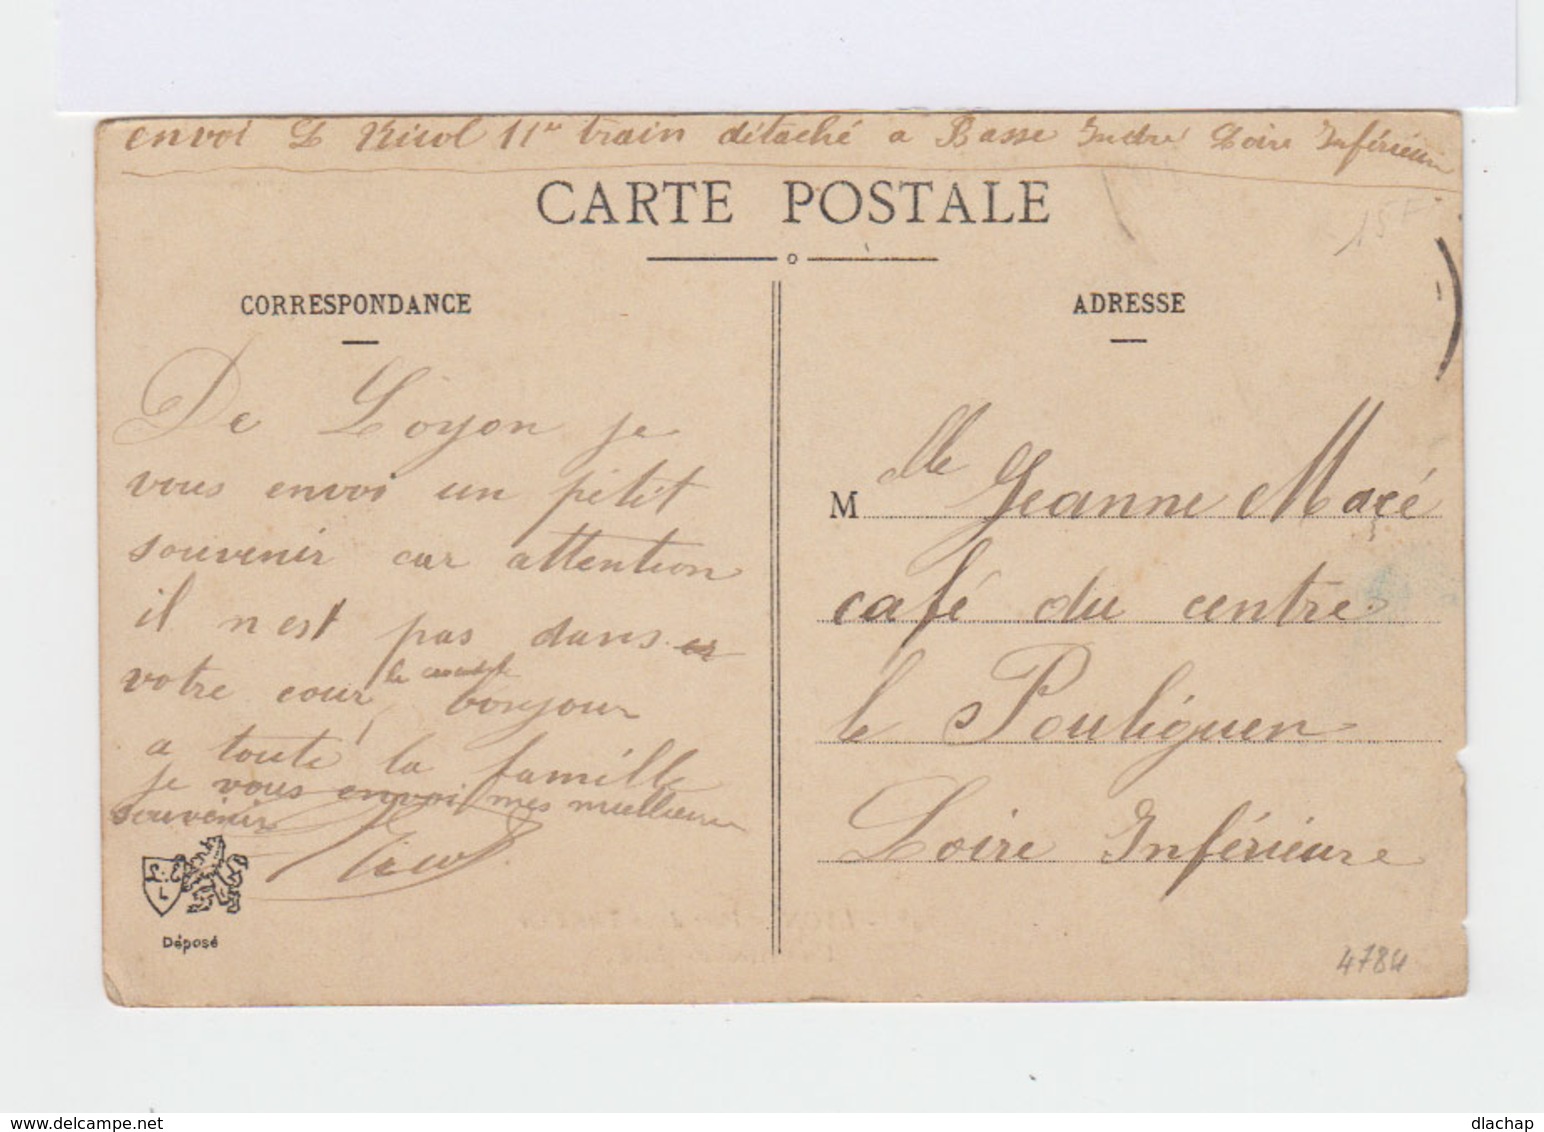 envoi L Nicol 11e train détaché a Basse Indre Loire Inférieure
CARTE POSTALE
15F
CORRESPONDANCE
De Loyon je
vous envoi un petit
souvenir car attention
il nest pas dans
votre cour le bonjour
a toute la famille
je vous envoi mes meilleure
souvenir
Nicol
L.E
L
Déposé
ADRESSE
Mlle Jeanne Macé
café du centre
le Pouliguen
Loire Inférieure
4784
delcampe.net
dlachap